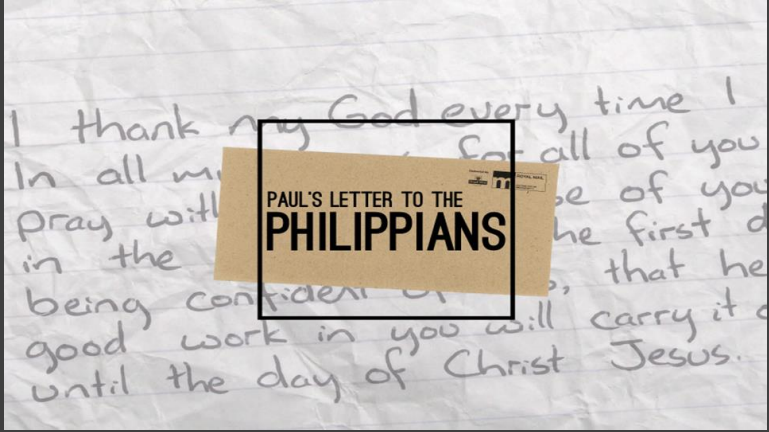 I thank my God every time I
In all for all of you
pray of you
in the the first
being confident that he
good work in you will carry it
until the day of Christ Jesus.
ROYAL MAIL
PAUL'S LETTER TO THE
PHILIPPIANS